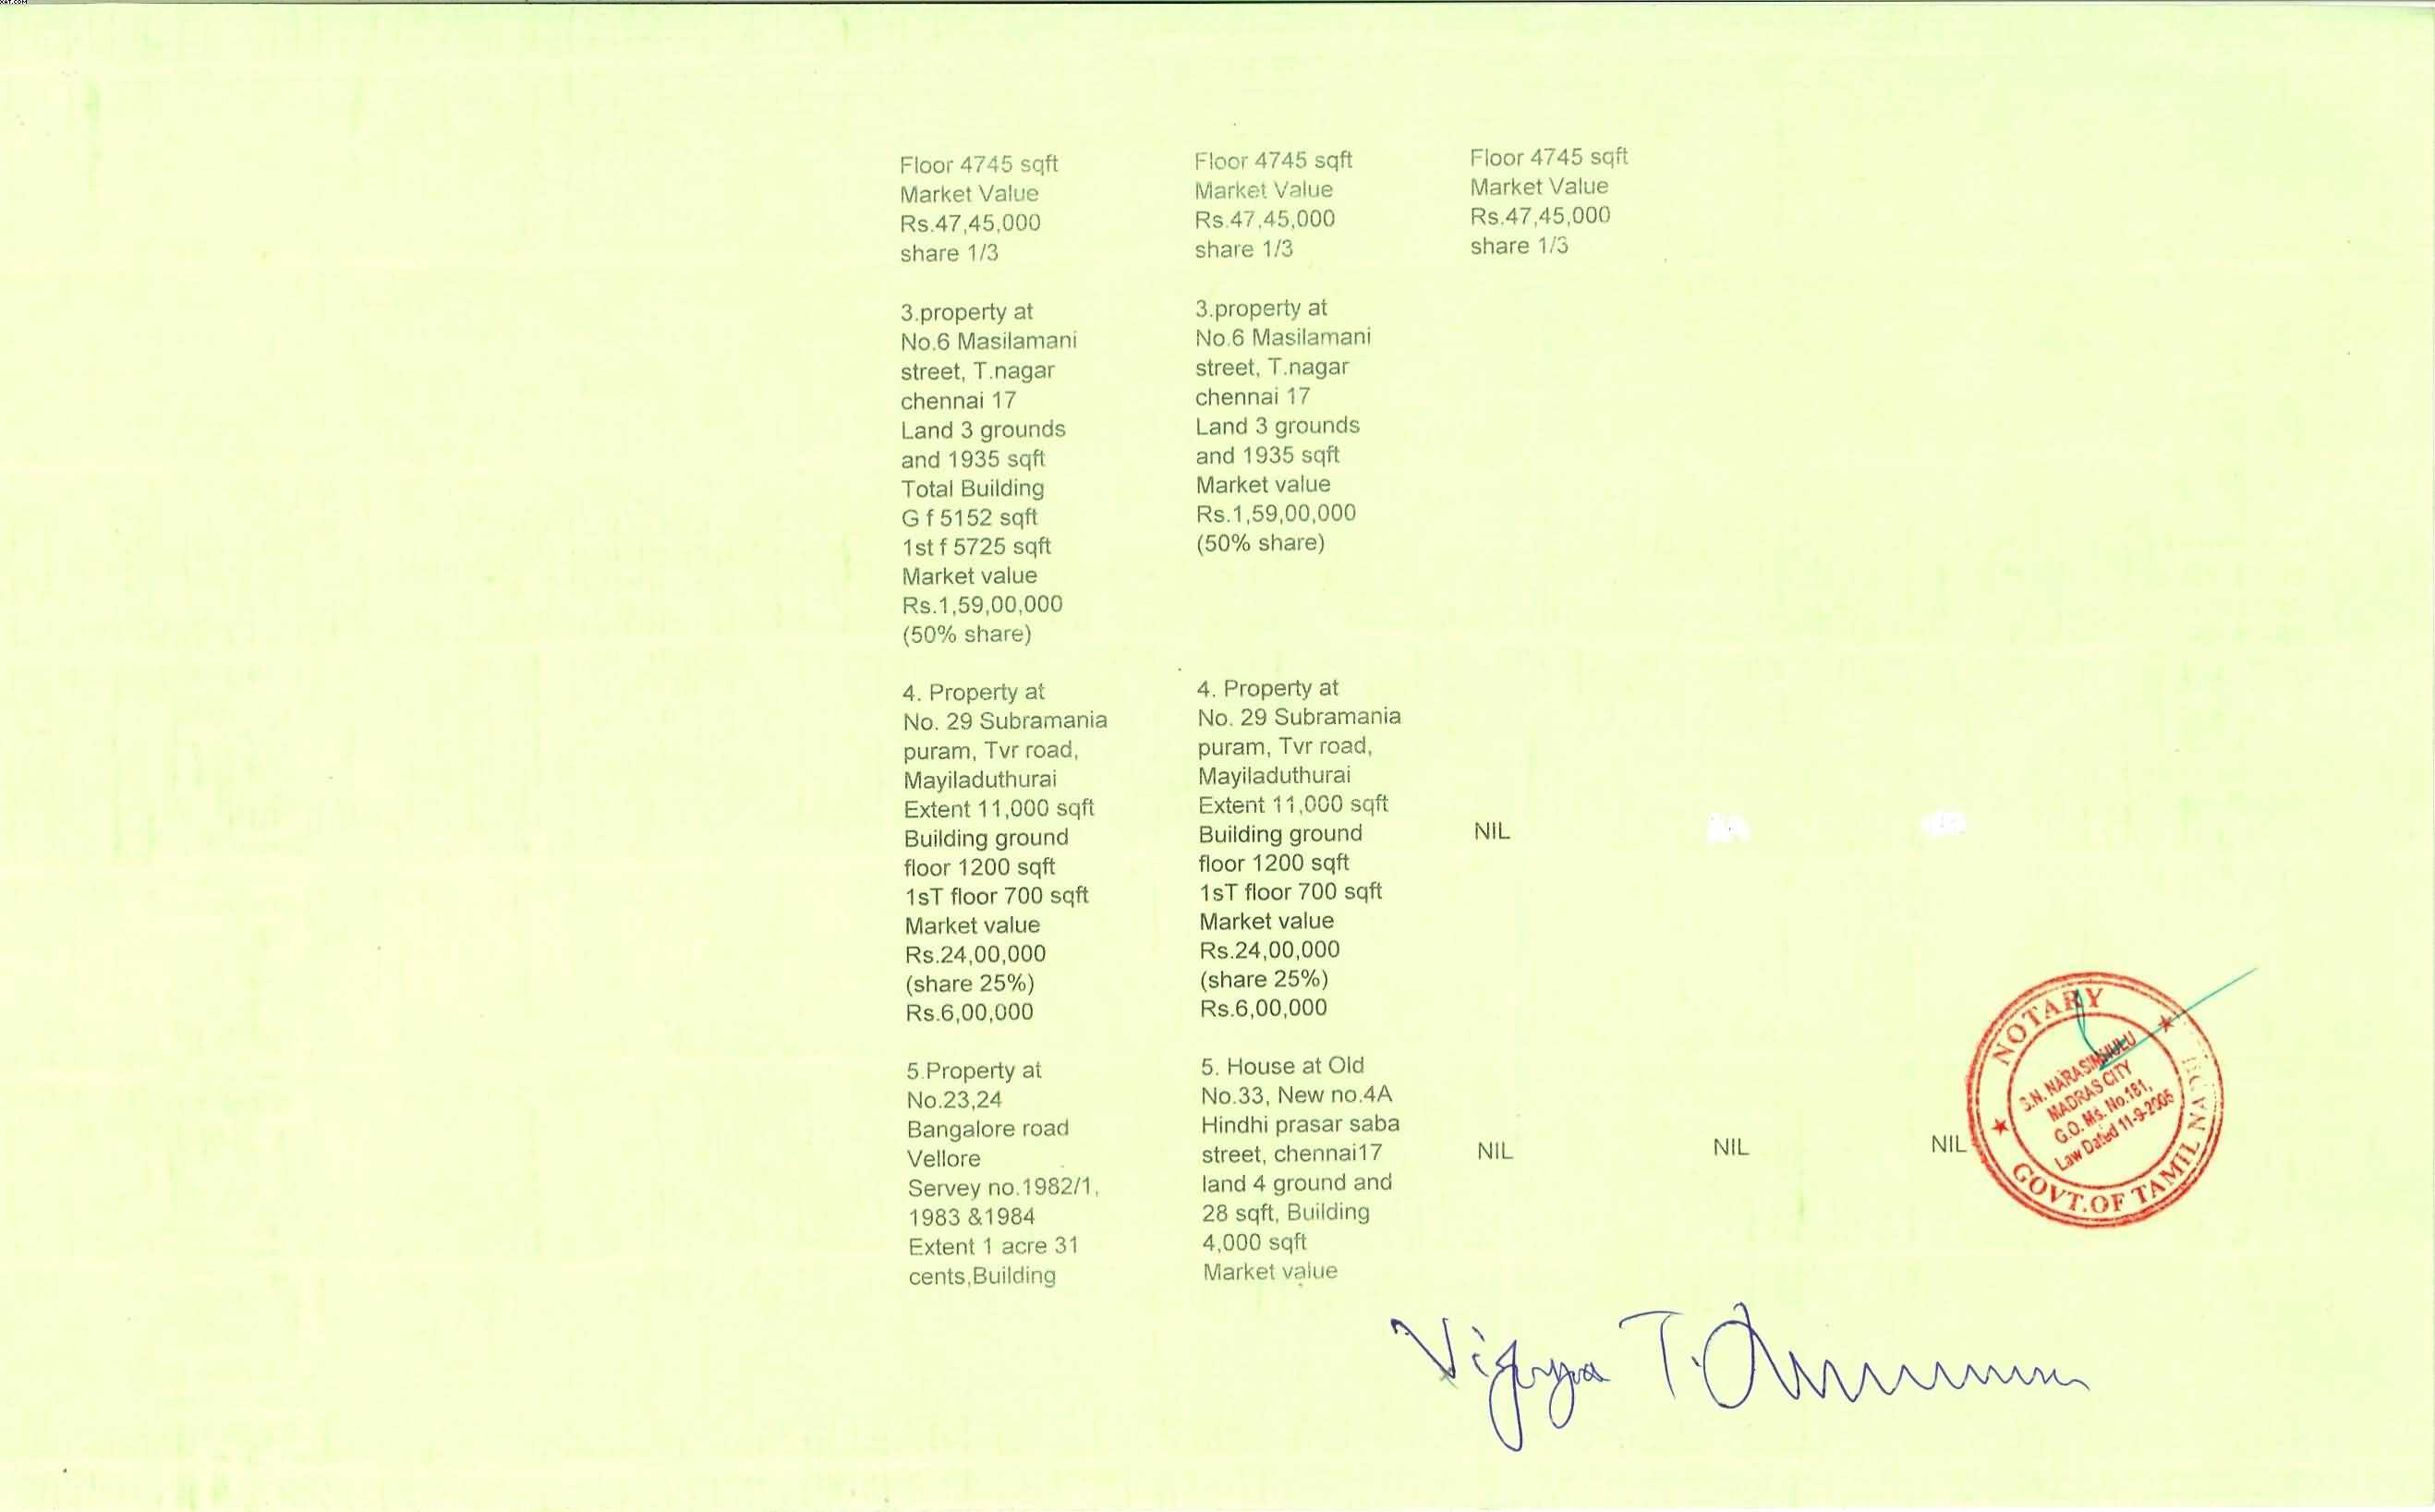 Floor 4745 sqft
Market Value
Rs.47,45,000
share 1/3
3.property at
No.6 Masilamani
street, T.nagar
chennai 17
Land 3 grounds
and 1935 sqft
Total Building
G f 5152 sqft
1st f 5725 sqft
Market value
Rs.1,59,00,000
(50% share)
4. Property at
No. 29 Subramania
puram, Tvr road,
Mayiladuthurai
Extent 11,000 sqft
Building ground
floor 1200 sqft
1sT floor 700 sqft
Market value
Rs.24,00,000
(share 25%)
Rs.6,00,000
5.Property at
No.23,24
Bangalore road
Vellore
Servey no.1982/1,
1983 &1984
Extent 1 acre 31
cents,Building
Floor 4745 sqft
Market Value
Rs.47,45,000
share 1/3
3.property at
No.6 Masilamani
street, T.nagar
chennai 17
Land 3 grounds
and 1935 sqft
Market value
Rs.1,59,00,000
(50% share)
4. Property at
No. 29 Subramania
puram, Tvr road,
Mayiladuthurai
Extent 11,000 sqft
Building ground
floor 1200 sqft
1sT floor 700 sqft
Market value
Rs.24,00,000
(share 25%)
Rs.6,00,000
5. House at Old
No.33, New no.4A
Hindhi prasar saba
street, chennai17
land 4 ground and
28 sqft, Building
4,000 sqft
Market value
Floor 4745 sqft
Market Value
Rs.47,45,000
share 1/3
NIL
NIL
NIL
NIL
NOTARY
S.N. NARASIMHULU
MADRAS CITY
G.O. Ms. No.181,
Law Dated 11-9-2006
GOVT.OF TAMIL NADU
Vijaya T.